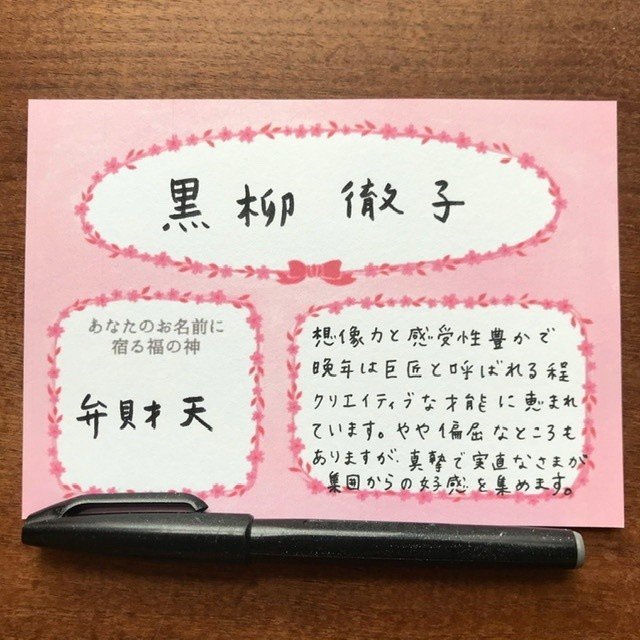 黒柳 徹子
あなたのお名前に
宿る福の神
弁財天
想像力と感受性豊かで
晩年は巨匠と呼ばれる程
クリエイティブな才能に恵まれ
ています。やや偏屈なところも
ありますが、真摯で実直なさまが
集団からの好感を集めます。